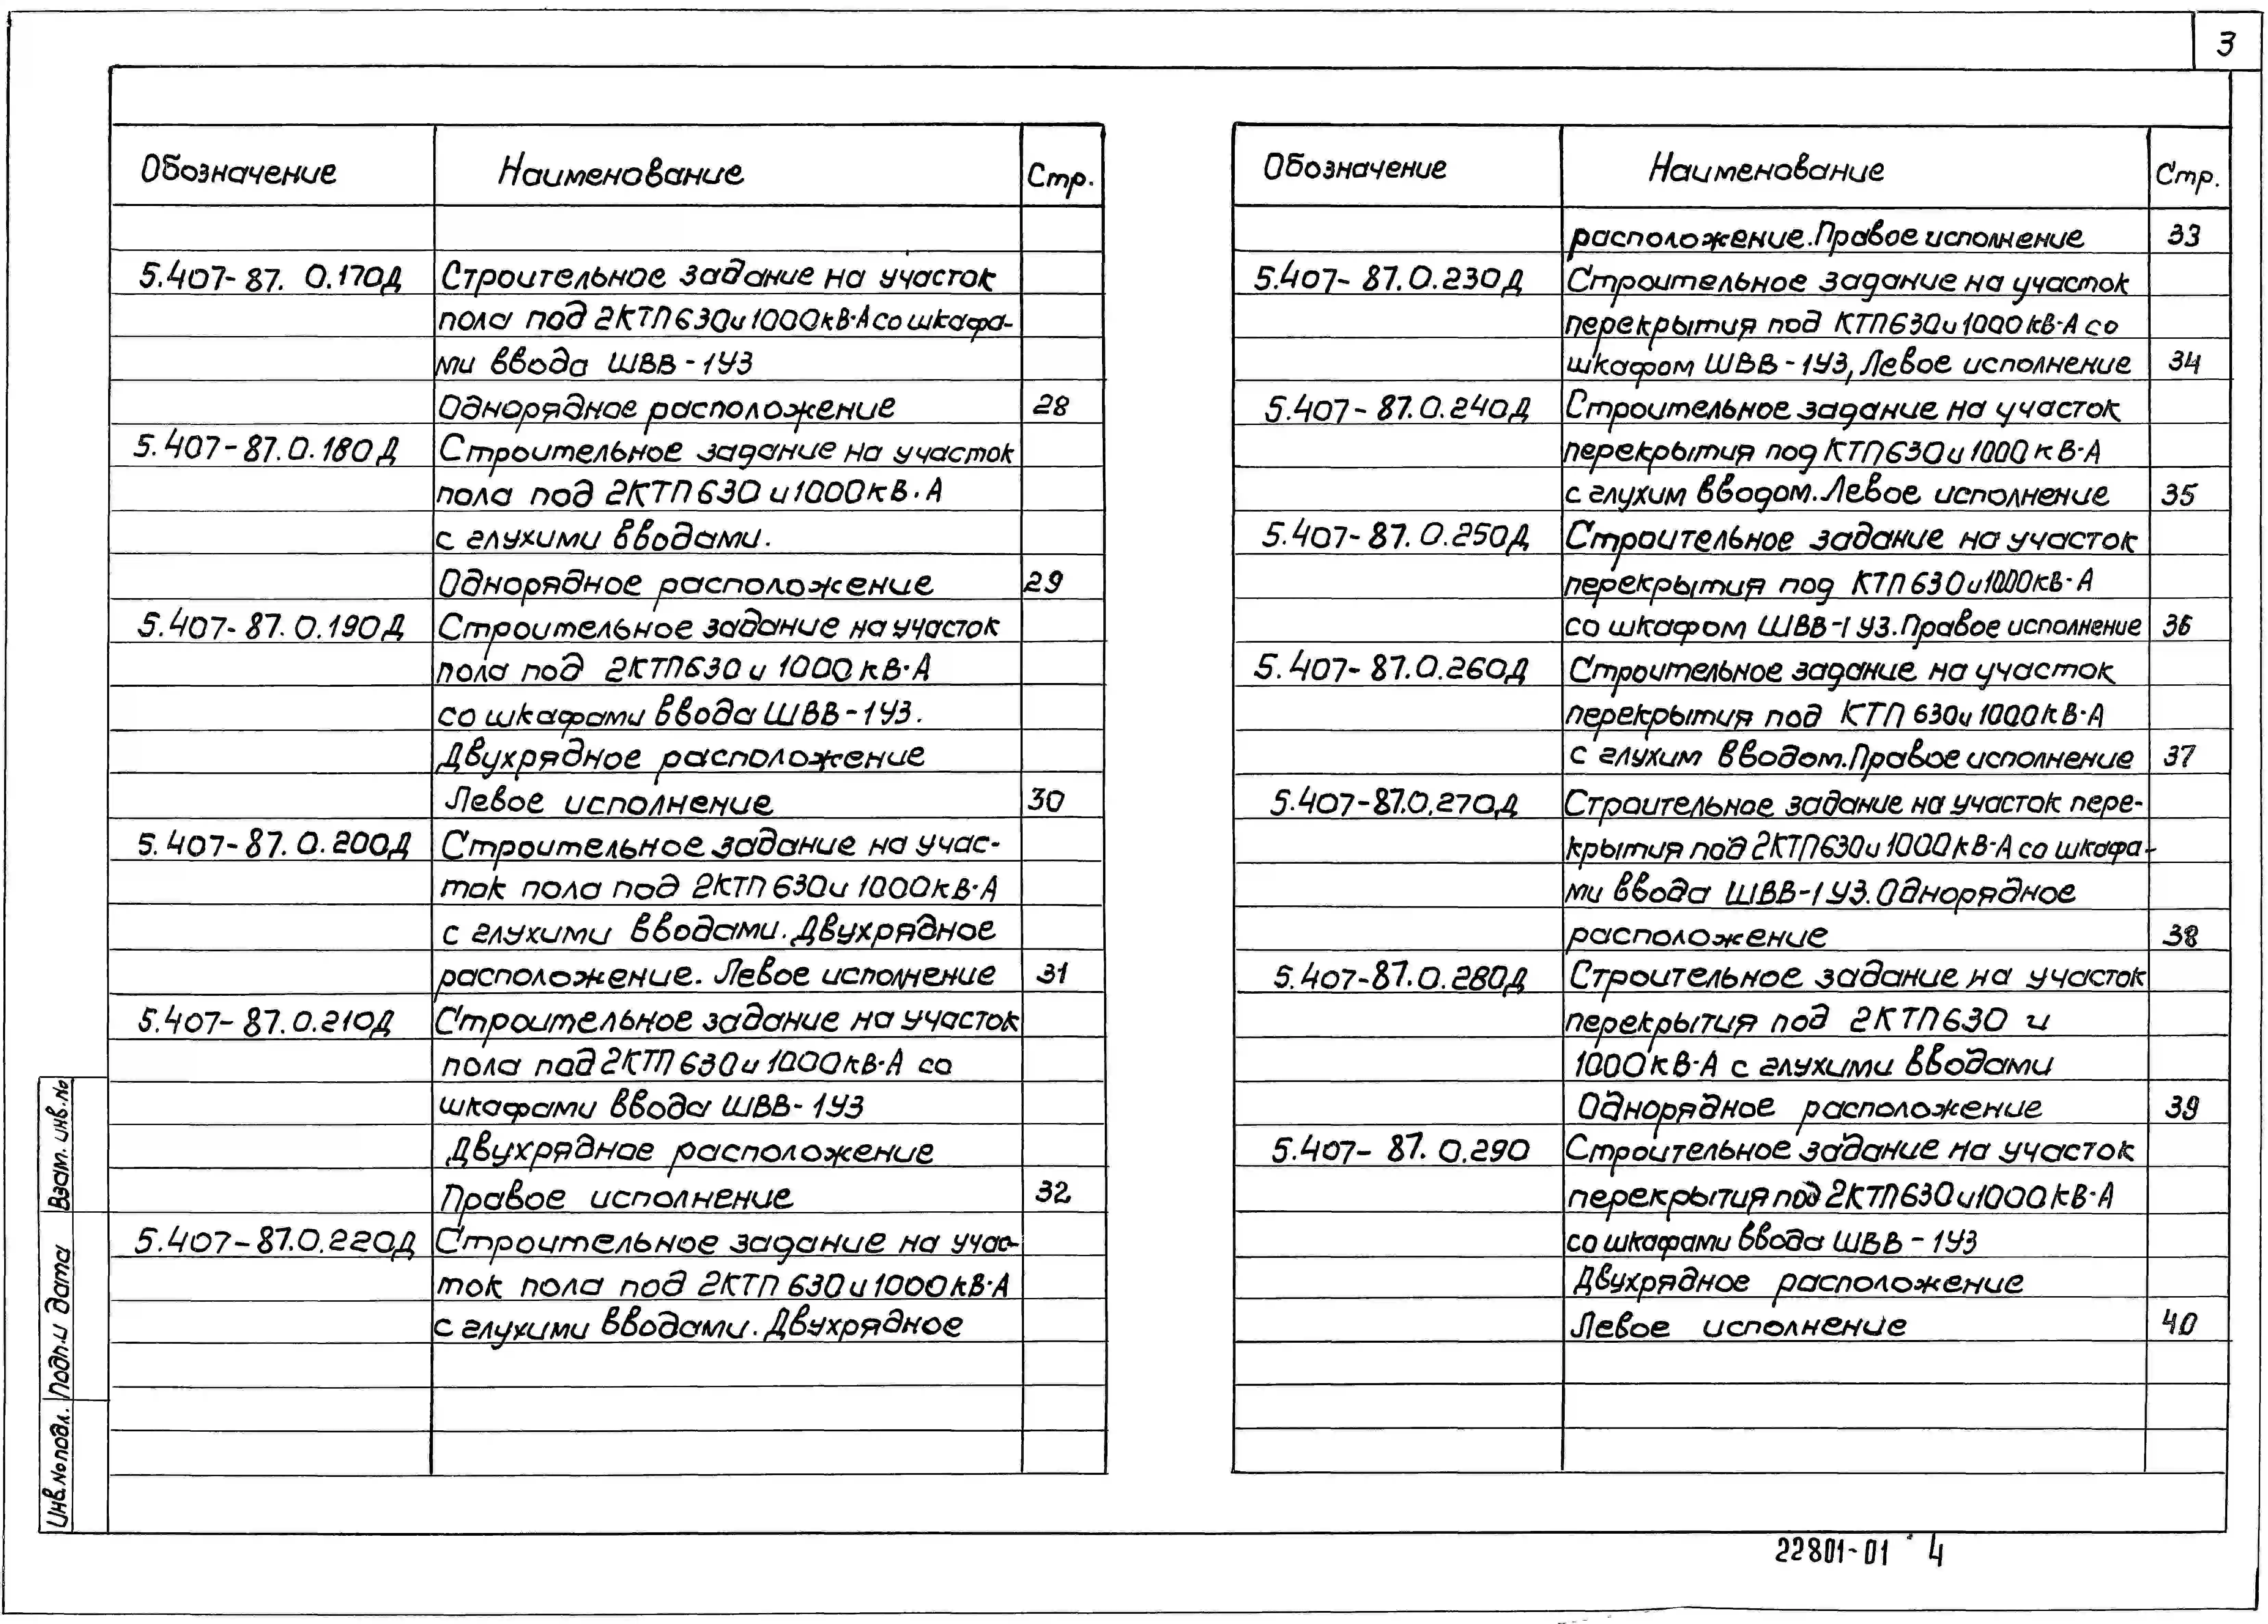 3
Обозначение Наименование Стр.
5.407-87.0.170Д Строительное задание на участок
пола под 2КТП 630 и 1000 кВ·А со шкафа-
ми ввода ШВВ-1У3
Однорядное расположение 28
5.407-87.0.180Д Строительное задание на участок
пола под 2КТП 630 и 1000 кВ·А
с глухими вводами.
Однорядное расположение 29
5.407-87.0.190Д Строительное задание на участок
пола под 2КТП 630 и 1000 кВ·А
со шкафами ввода ШВВ-1У3.
Двухрядное расположение
Левое исполнение 30
5.407-87.0.200Д Строительное задание на учас-
ток пола под 2КТП 630 и 1000 кВ·А
с глухими вводами. Двухрядное
расположение. Левое исполнение 31
5.407-87.0.210Д Строительное задание на участок
пола под 2КТП 630 и 1000 кВ·А со
шкафами ввода ШВВ-1У3
Двухрядное расположение
Правое исполнение 32
5.407-87.0.220Д Строительное задание на учас-
ток пола под 2КТП 630 и 1000 кВ·А
с глухими вводами. Двухрядное
Обозначение Наименование Стр.
расположение. Правое исполнение 33
5.407-87.0.230Д Строительное задание на участок
перекрытия под КТП 630 и 1000 кВ·А со
шкафом ШВВ-1У3, Левое исполнение 34
5.407-87.0.240Д Строительное задание на участок
перекрытия под КТП 630 и 1000 кВ·А
с глухим вводом. Левое исполнение 35
5.407-87.0.250Д Строительное задание на участок
перекрытия под КТП 630 и 1000 кВ·А
со шкафом ШВВ-1У3. Правое исполнение 36
5.407-87.0.260Д Строительное задание на участок
перекрытия под КТП 630 и 1000 кВ·А
с глухим вводом. Правое исполнение 37
5.407-87.0.270Д Строительное задание на участок пере-
крытия под 2КТП 630 и 1000 кВ·А со шкафа-
ми ввода ШВВ-1У3. Однорядное
расположение 38
5.407-87.0.280Д Строительное задание на участок
перекрытия под 2КТП 630 и
1000 кВ·А с глухими вводами
Однорядное расположение 39
5.407-87.0.290 Строительное задание на участок
перекрытия под 2КТП 630 и 1000 кВ·А
со шкафами ввода ШВВ-1У3
Двухрядное расположение
Левое исполнение 40
Взам. инв. №
Подп. и дата
Инв. № подл.
22801-01 4